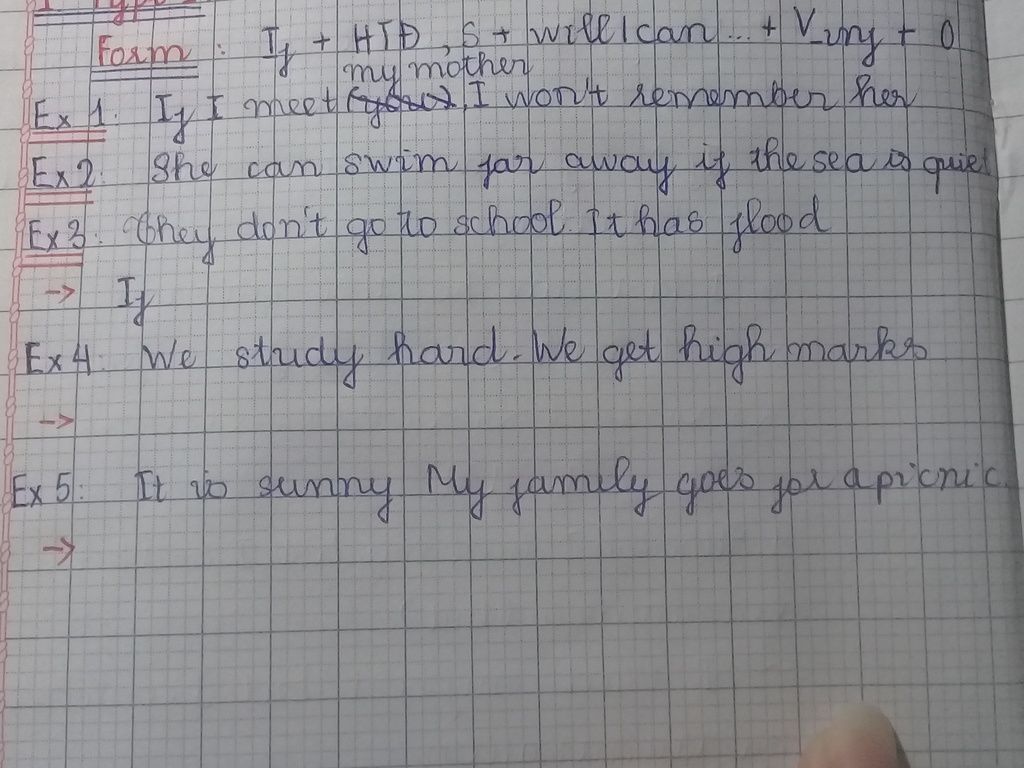 Type
Form : If + HTĐ, S + will/can ... + V_inf + O
my mother
Ex 1: If I meet, I won't remember her
Ex 2: She can swim far away if the sea is quiet
Ex 3: They don't go to school. It has flood
→ If
Ex 4: We study hard. We get high marks
→
Ex 5: It is sunny My family goes for a picnic.
→